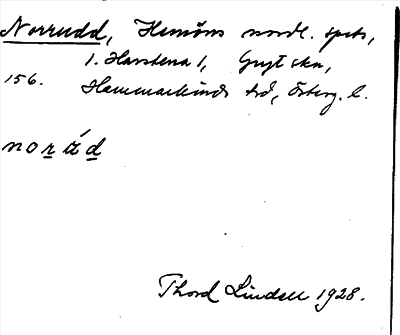 Norrudd, Hemöns nordl. spets,
1. Harstena 1, Gryt skn,
156. Hammarkinds hd, Österg. l.
norúd
Thord Lindell 1928.